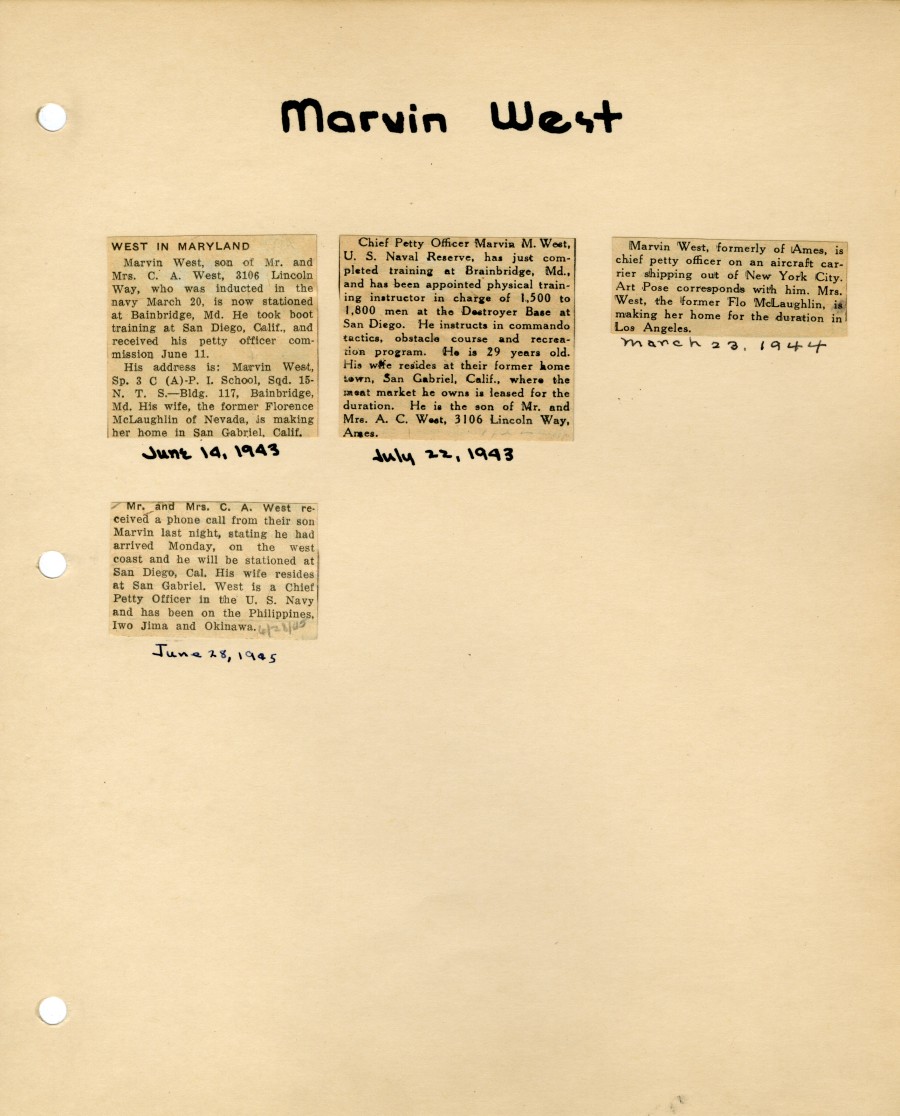 Marvin West
WEST IN MARYLAND
Marvin West, son of Mr. and
Mrs. C. A. West, 3106 Lincoln
Way, who was inducted in the
navy March 20, is now stationed
at Bainbridge, Md. He took boot
training at San Diego, Calif., and
received his petty officer com-
mission June 11.
His address is: Marvin West,
Sp. 3 C (A)-P. I. School, Sqd. 15-
N. T. S.—Bldg. 117, Bainbridge,
Md. His wife, the former Florence
McLaughlin of Nevada, is making
her home in San Gabriel, Calif.
June 14, 1943
Chief Petty Officer Marvin M. West,
U. S. Naval Reserve, has just com-
pleted training at Brainbridge, Md.,
and has been appointed physical train-
ing instructor in charge of 1,500 to
1,800 men at the Destroyer Base at
San Diego. He instructs in commando
tactics, obstacle course and recrea-
tion program. He is 29 years old.
His wife resides at their former home
town, San Gabriel, Calif., where the
meat market he owns is leased for the
duration. He is the son of Mr. and
Mrs. A. C. West, 3106 Lincoln Way,
Ames.
July 22, 1943
Marvin West, formerly of Ames, is
chief petty officer on an aircraft car-
rier shipping out of New York City.
Art Pose corresponds with him. Mrs.
West, the former Flo McLaughlin, is
making her home for the duration in
Los Angeles.
March 23, 1944
Mr. and Mrs. C. A. West re-
ceived a phone call from their son
Marvin last night, stating he had
arrived Monday, on the west
coast and he will be stationed at
San Diego, Cal. His wife resides
at San Gabriel. West is a Chief
Petty Officer in the U. S. Navy
and has been on the Philippines,
Iwo Jima and Okinawa.
June 28, 1945